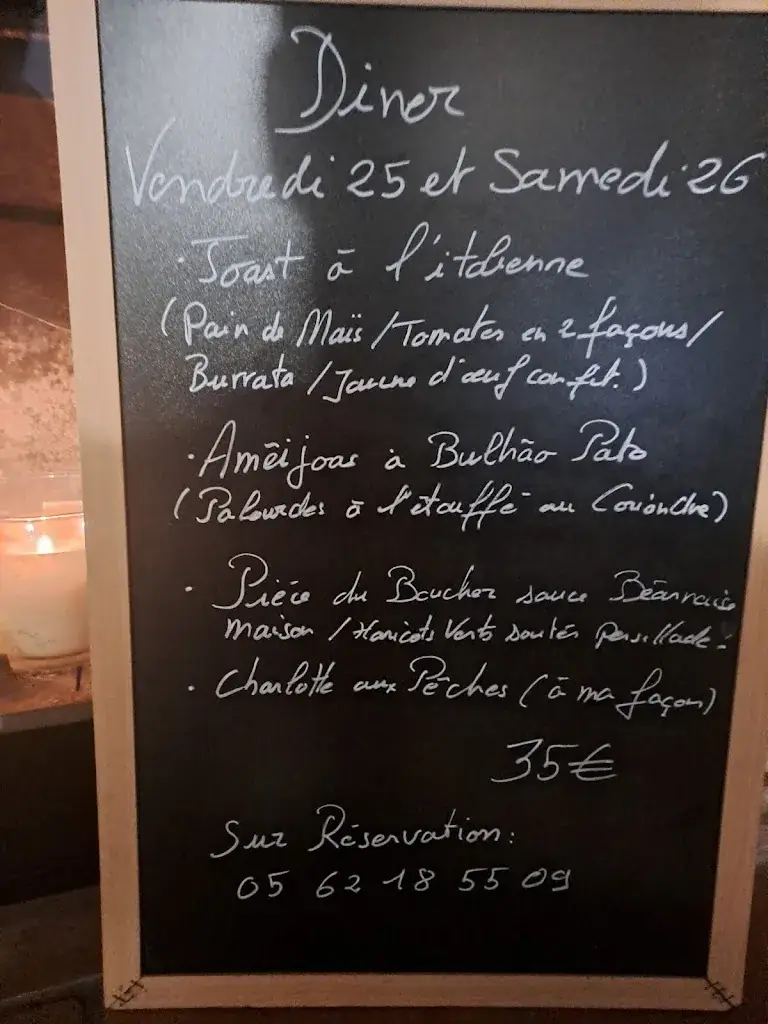 Diner
Vendredi 25 et Samedi 26
• Toast à l'italienne
(Pain de Maïs / Tomates en 2 façons /
Burrata / Jaune d'œuf confit.)
• Amêijoas à Bulhão Pato
(Palourdes à l'étouffé au Coriandre)
• Pièce du Boucher sauce Béarnaise
maison / Haricots Verts sautés persillade.
• Charlotte aux Pêches (à ma façon)
35€
Sur Réservation:
05 62 18 55 09